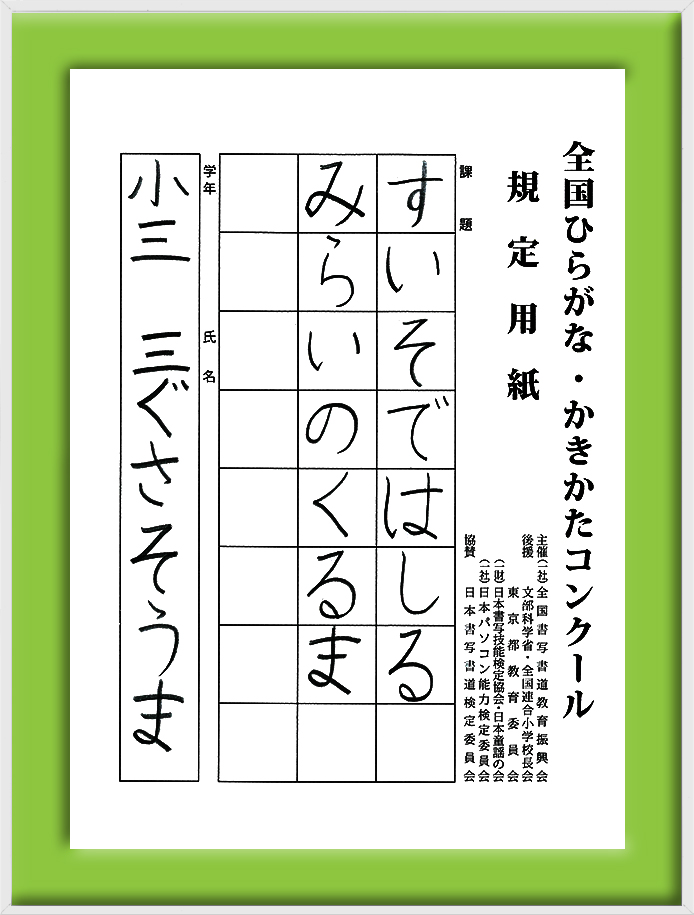 全国ひらがな・かきかたコンクール
規定用紙
主催（一社）全国書写書道教育振興会
後援　文部科学省・全国連合小学校長会
東京都教育委員会
（一財）日本書写技能検定協会・日本童謡の会
（一社）日本パソコン能力検定委員会
協賛　日本書写書道検定委員会
課題
すいそではしる
みらいのくるま
学年
氏名
小三　三ぐさそうま